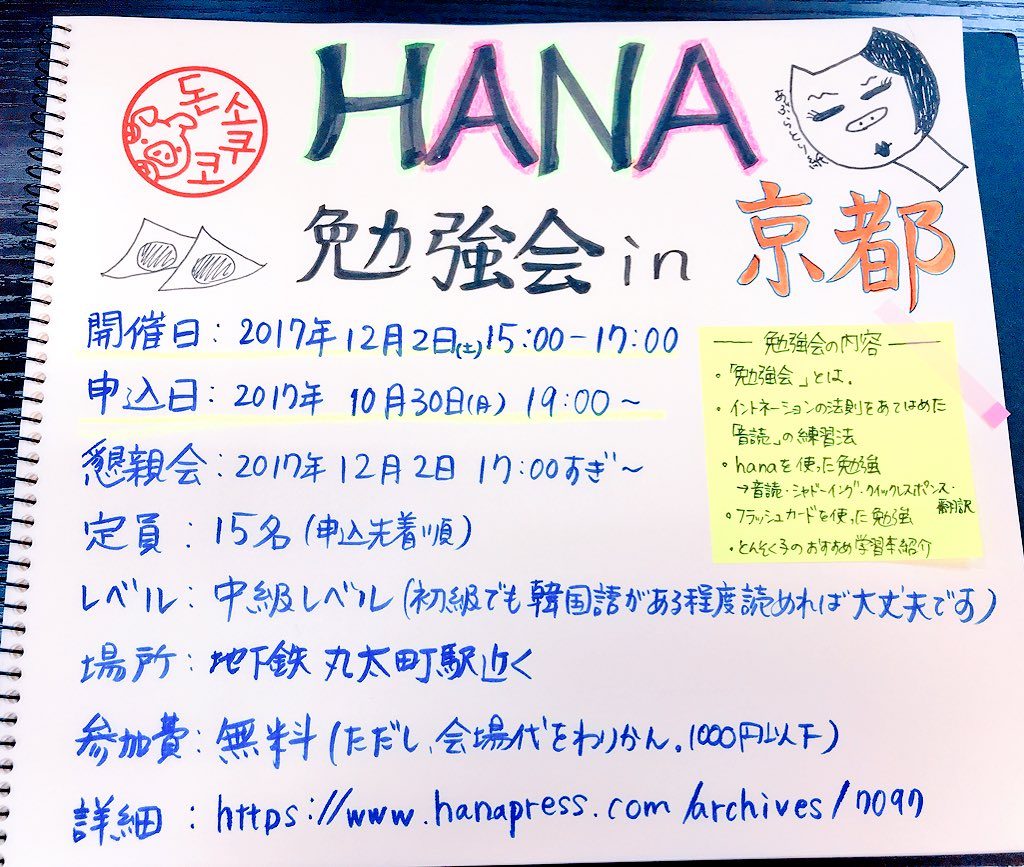 돈소쿠코
HANA
あぶらとり紙
勉強会 in 京都
開催日：2017年12月2日(土)15:00-17:00
申込日：2017年 10月30日(月) 19:00～
懇親会：2017年12月2日 17:00すぎ～
定員：15名(申込先着順)
レベル：中級レベル(初級でも韓国語がある程度読めれば大丈夫です)
場所：地下鉄 丸太町駅近く
参加費：無料(ただし、会場代をわりかん。1000円以下)
詳細：https://www.hanapress.com/archives/7097
勉強会の内容
・「勉強会」とは。
・イントネーションの法則をあてはめた
「音読」の練習法
・hanaを使った勉強
→音読・シャドーイング・クイックレスポンス・
翻訳
・フラッシュカードを使った勉強
・とんそく子のおすすめ学習本紹介